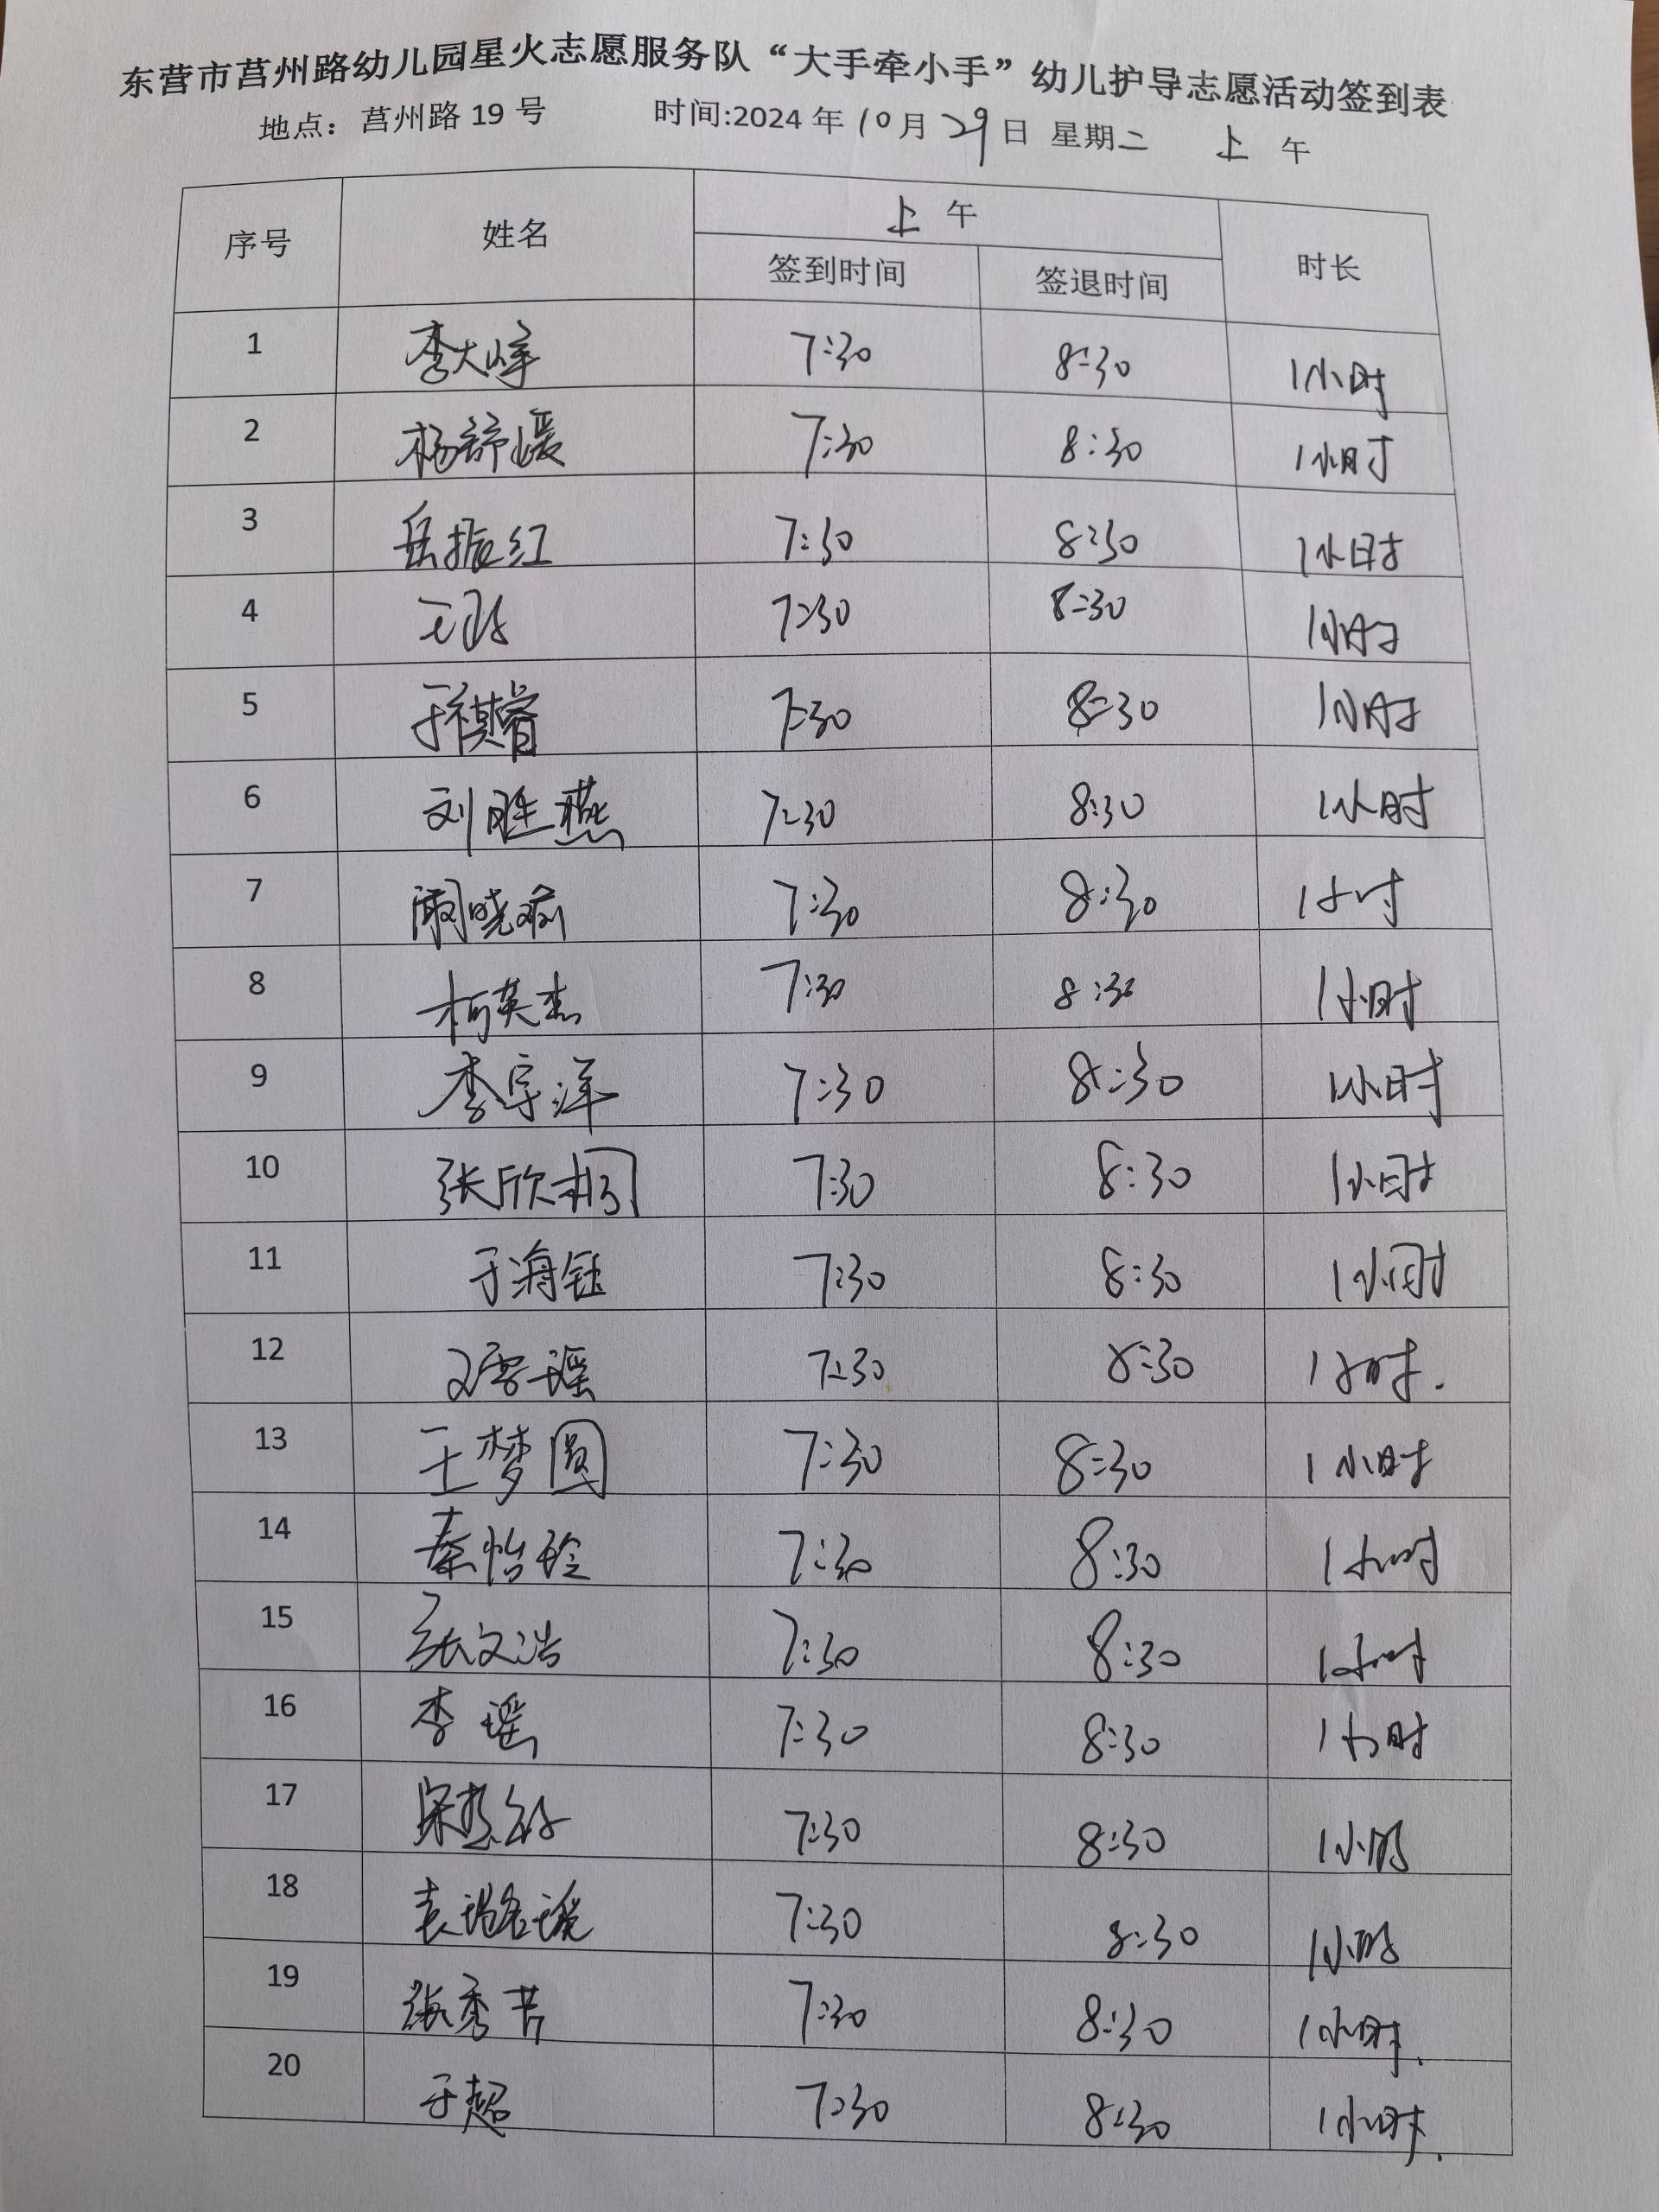 东营市莒州路幼儿园星火志愿服务队“大手牵小手”幼儿护导志愿活动签到表
地点：莒州路 19 号 时间:2024 年 10 月 29 日 星期二 上 午
序号 姓名 上 午 时长
签到时间 签退时间
1 李大峰 7:30 8:30 1小时
2 杨舒媛 7:30 8:30 1小时
3 岳振红 7:30 8:30 1小时
4 7:30 8:30 1小时
5 于祺睿 7:30 8:30 1小时
6 刘胜燕 7:30 8:30 1小时
7 7:30 8:30 1小时
8 柯英杰 7:30 8:30 1小时
9 李宗洋 7:30 8:30 1小时
10 张欣桐 7:30 8:30 1小时
11 于海钰 7:30 8:30 1小时
12 7:30 8:30 1小时.
13 王梦圆 7:30 8:30 1小时
14 秦怡玲 7:30 8:30 1小时
15 张文浩 7:30 8:30 1小时
16 李瑶 7:30 8:30 1小时
17 7:30 8:30 1小时
18 袁璐瑶 7:30 8:30 1小时
19 张秀芹 7:30 8:30 1小时.
20 于超 7:30 8:30 1小时.